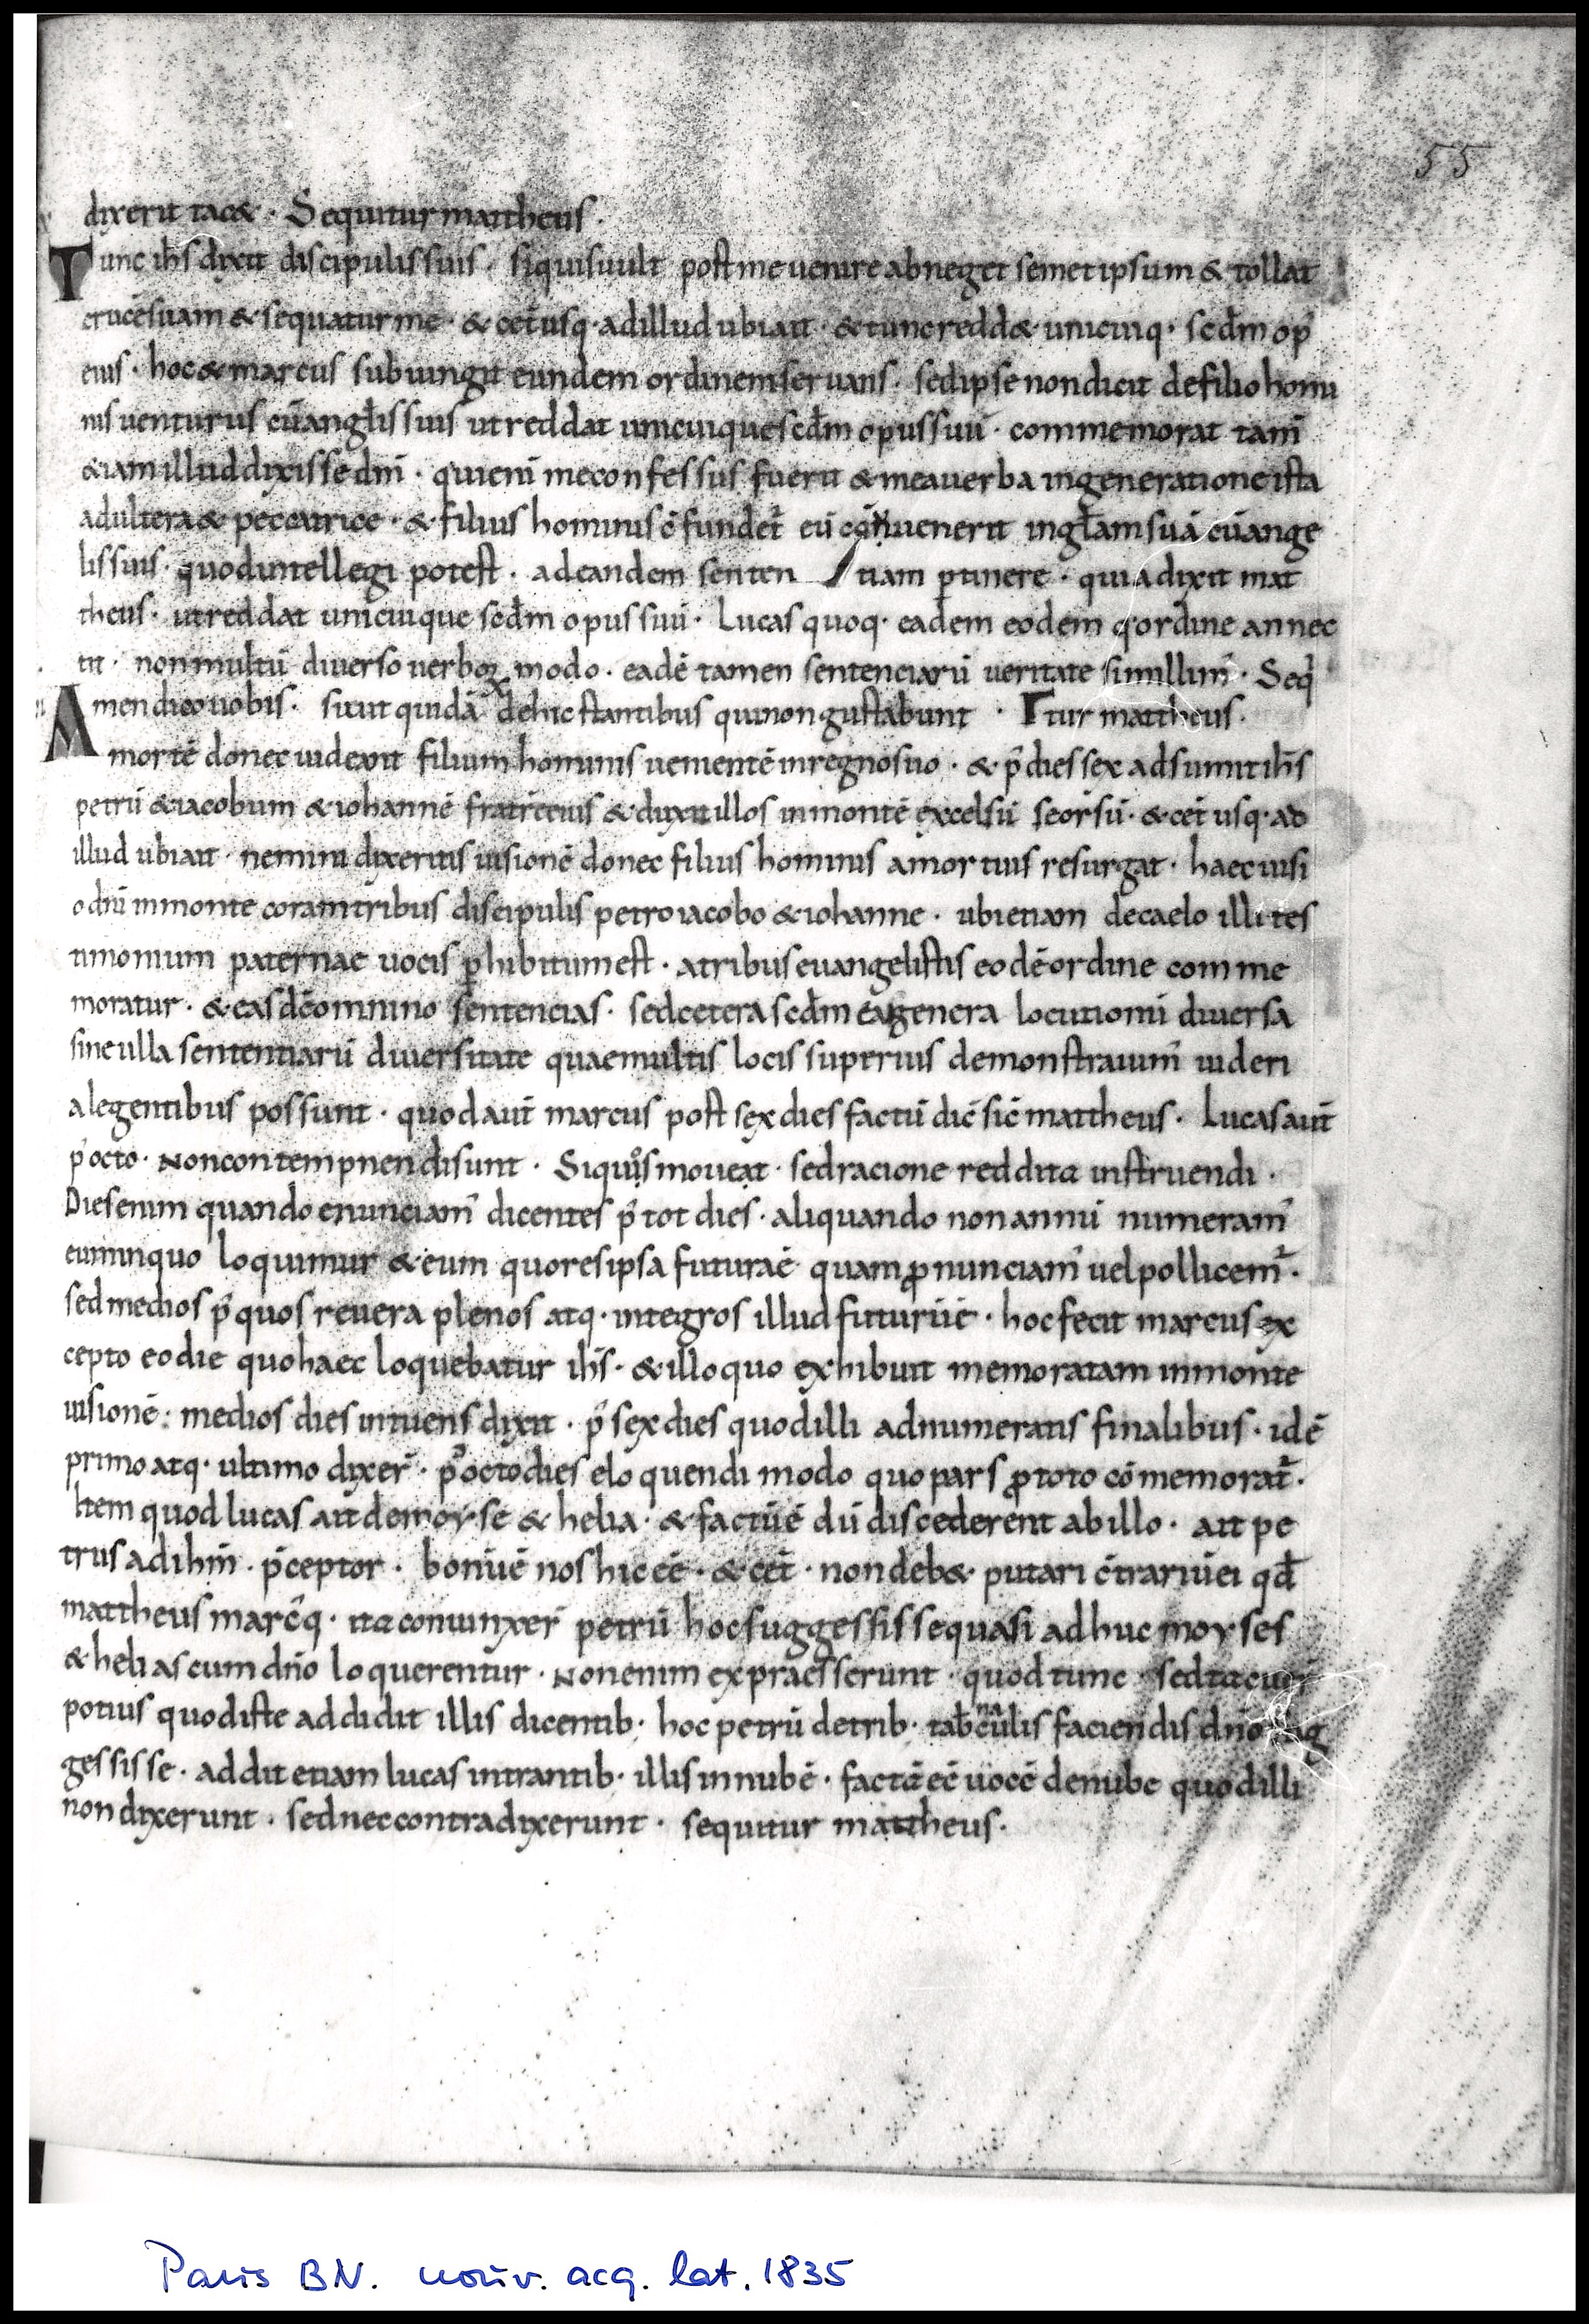 55
dixerit tac&. Sequitur mattheus.
Tunc ihs̄ dixit discipulis suis. si quis uult post me uenire abneget semet ipsum & tollat
crucē suam & sequatur me. & cet̄ usq. ad illud ubi ait. & tunc redd& unicuiq. scdm̄ op̄
eius. hoc & marcus subiungit eundem ordinem seruans. sed ipse non dicit de filio homi
nis uenturus cū angl̄is suis ut reddat unicuique scdm̄ opus suū. commemorat tam̄
& iam illud dixisse dn̄i. qui eni me confessus fuerit & mea uerba in generatione ista
adultera & peccatrice. & filius hominis c̄fundet̄ eū cū uenerit in gl̄am suā cū ange
lis suis. quod intellegi potest. ad eandem senten tiam ꝑtinere. quia dixit mat
theus. ut reddat unicuique scdm̄ opus suū. Lucas quoq. eadem eodem q' ordine annec
tit. non multū diuerso uerboꝝ modo. eadē tamen sententiarū ueritate simillim̄. Seq̄
Amen dico uobis. sunt quidā de hic stantibus qui non gustabunt. Γ tur mattheus.
mortē donec uideant filium hominis uenientē in regno suo. & p̄ dies sex adsumit ihs̄
petrū & iacobum & iohannē fratrē eius & duxit illos in montē excelsū seorsū. & cet̄ usq. ad
illud ubi ait. nemini dixeritis uisionē donec filius hominis a mortuis resurgat. haec uisi
o dn̄i in monte coram tribus discipulis petro iacobo & iohanne. ubi etiam de caelo illi tes
timonium paternae uocis ꝑhibitum est. a tribus euangelistis eodē ordine comme
moratur. & easdē omnino sentencias. sed cetera scdm̄ ea genera locutionū diuersa
sine ulla sententiarū diuersitate quae multis locis superius demonstrauim̄ uideri
a legentibus possunt. quod aut̄ marcus post sex dies factū dic̄ sic̄ mattheus. Lucas aut̄
p̄ octo. Non contempnendi sunt. Si quos moueat. sed racione reddita instruendi.
Dies enim quando enunciam̄ dicentes p̄ tot dies. aliquando non annū numeram̄
eum in quo loquimur & eum quo res ipsa futura ē quam ꝓnunciam̄ uel pollicem̄.
sed medios p̄ quos reuera plenos atq. integros illud futurū ē. hoc fecit marcus ex
cepto eo die quo haec loquebatur ihs̄. & illo quo exhibuit memoratam in monte
uisionē: medios dies intuens dixit. p̄ sex dies quod illi adnumerans finalibus. idē
primo atq. ultimo dixer̄. p̄ octo dies eloquendi modo quo pars ꝓ toto cōmemorat̄.
Item quod lucas ait de moyse & helia. & factū ē dū discederent ab illo. ait pe
trus ad ihm̄. p̄ceptor. bonū ē nos hic eē. & cet̄. non deb& putari c̄trariū ei qd̄
mattheus marc̄q. ita coniunxer̄ petrū hoc suggessisse quasi adhuc moyses
& helias cum dn̄o loquerentur. Non enim expraesserunt. quod tunc. sed tacu
potius quod iste addidit illis dicentib. hoc petrū de trib. tab̄nāc̄ulis faciendis dn̄o
gessisse. addit etiam lucas intrantib. illis in nubē. factā eē uocē de nube quod illi
non dixerunt. sed nec contradixerunt. sequitur mattheus.
Paris BN. nouv. acq. lat. 1835